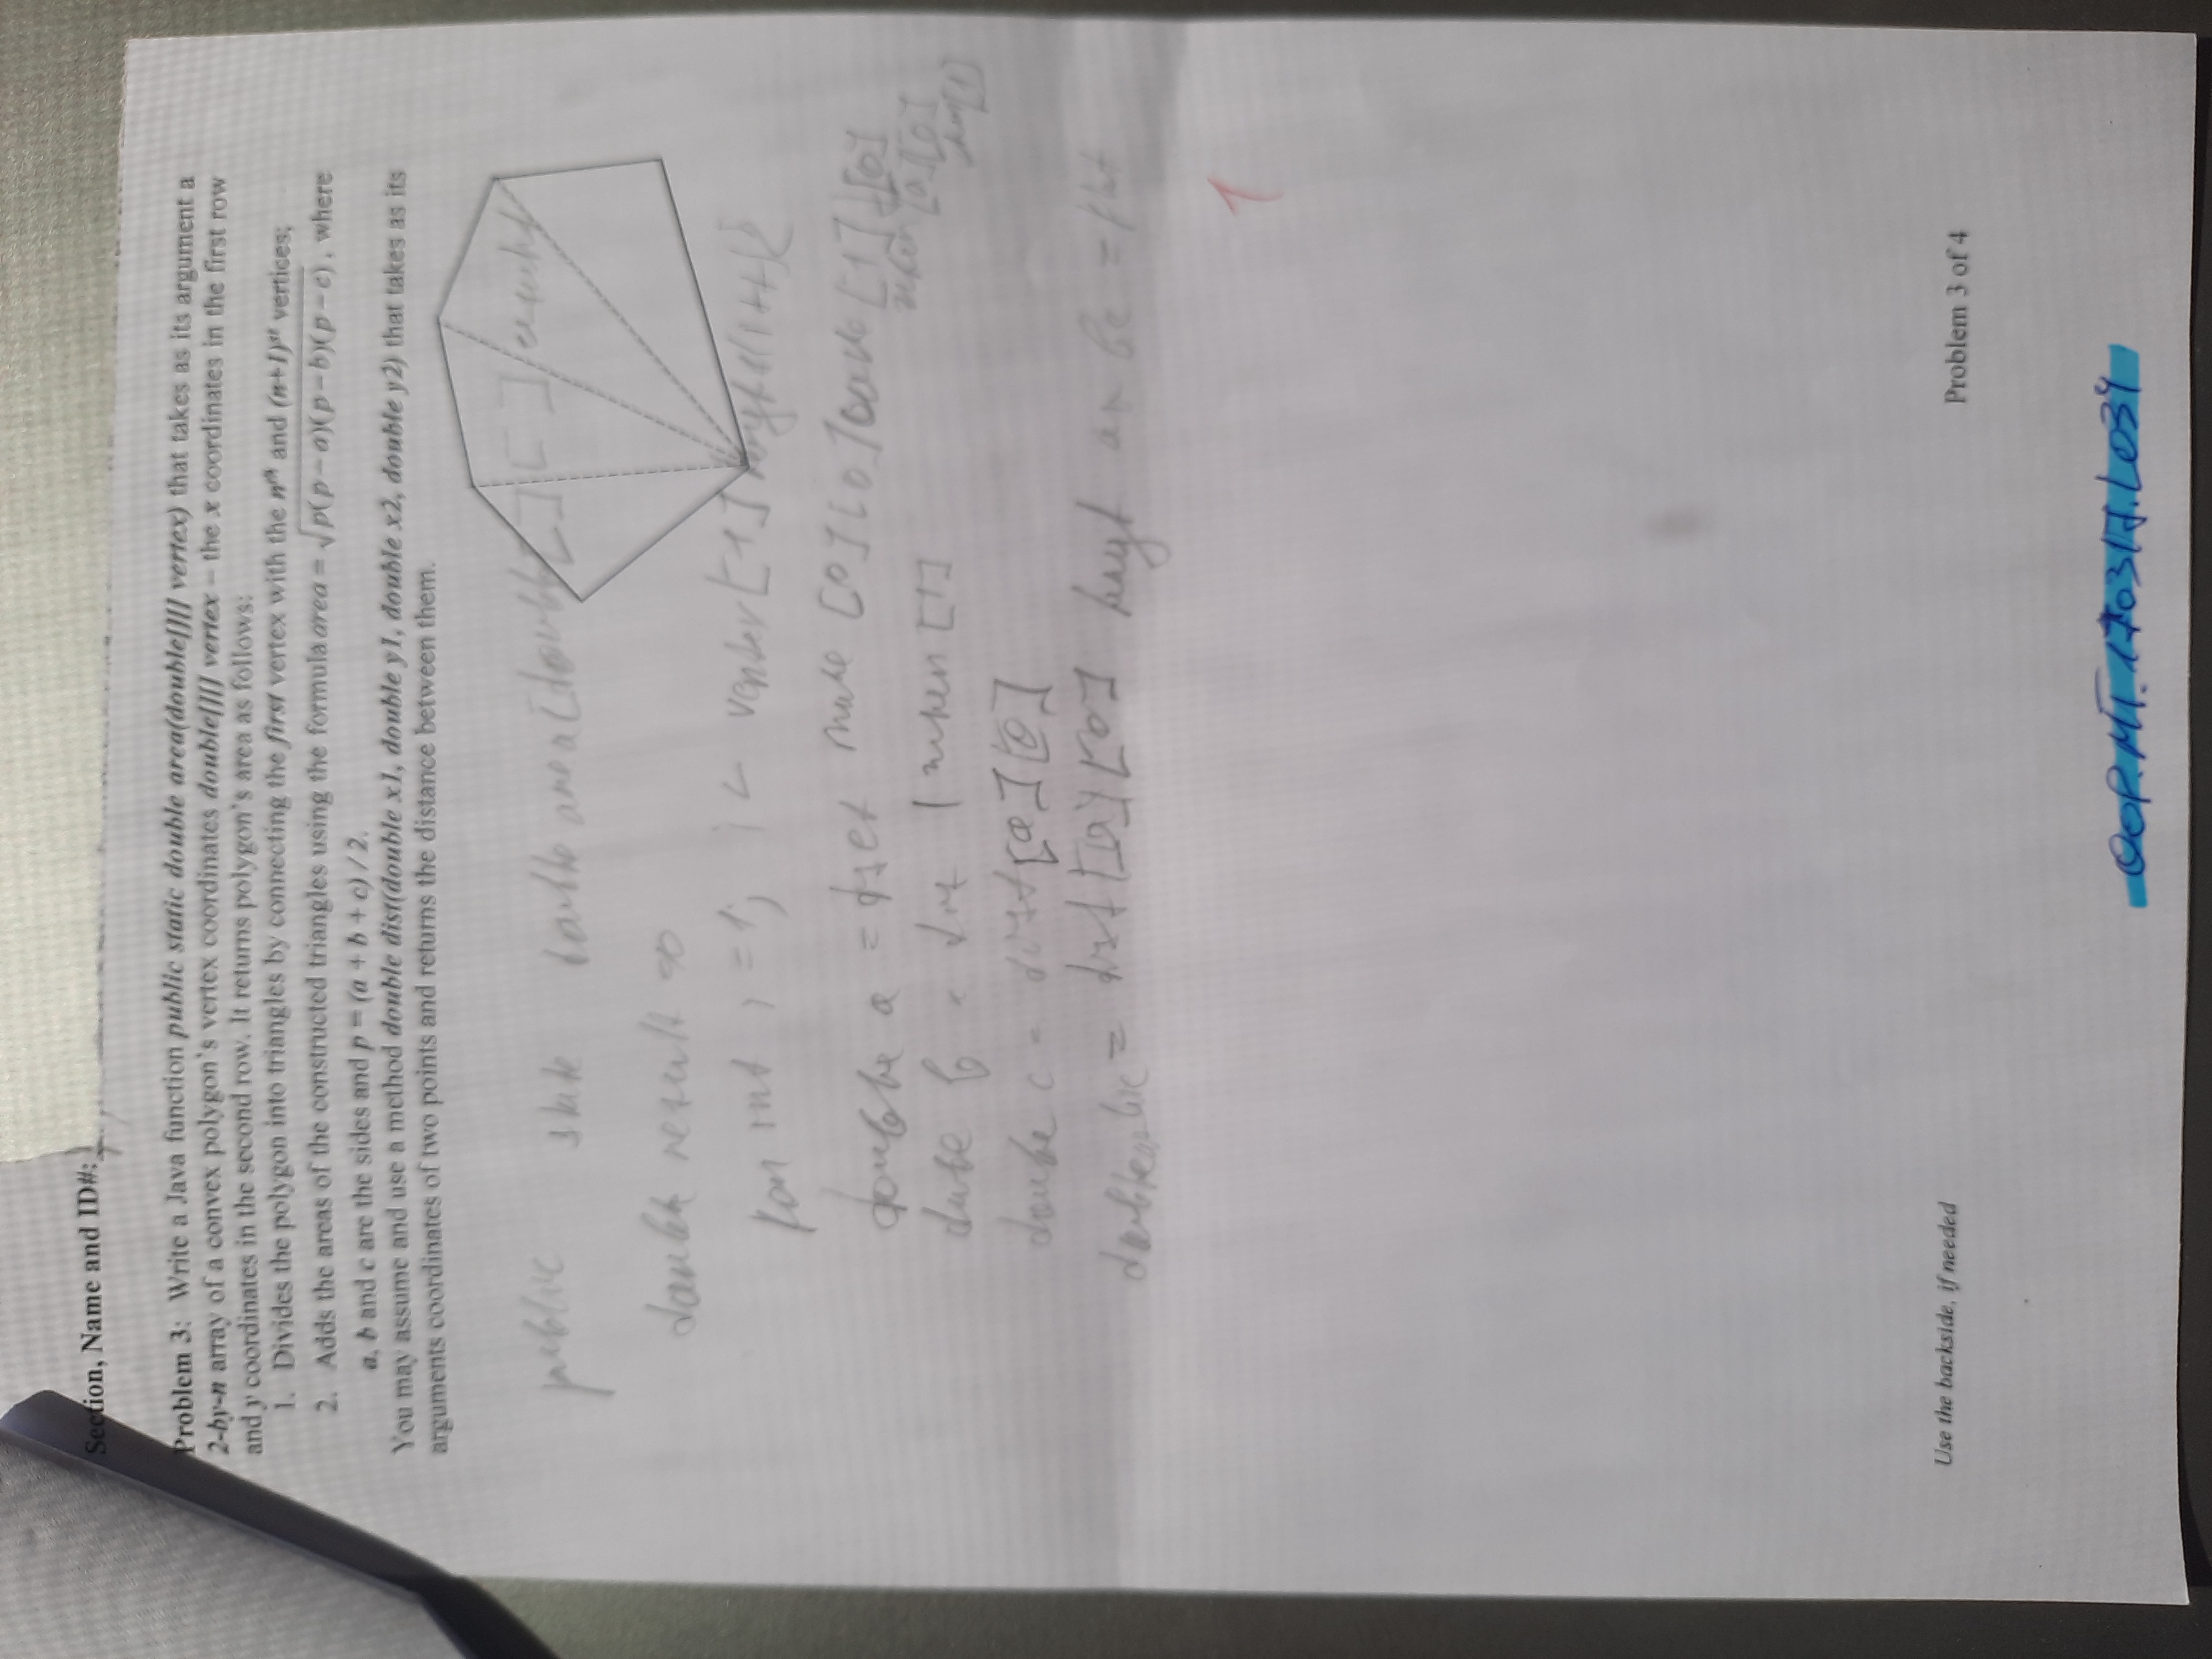 Section, Name and ID#:
Problem 3: Write a Java function public static double area(double[][] vertex) that takes as its argument a
2-by-n array of a convex polygon's vertex coordinates double[][] vertex – the x coordinates in the first row
and y coordinates in the second row. It returns polygon's area as follows:
1. Divides the polygon into triangles by connecting the first vertex with the nth and (n+1)st vertices;
2. Adds the areas of the constructed triangles using the formula area = √p(p – a)(p – b)(p – c) , where
a, b and c are the sides and p = (a + b + c) / 2.
You may assume and use a method double dist(double x1, double y1, double x2, double y2) that takes as its
arguments coordinates of two points and returns the distance between them.
public state double area [double[][]
double result =0
for int i =1; i < [1] i++){
double a = [0][0] [1][0]
[0][0]
[1]
b = [1]
double c = dist[0][0]
= dist[0][0] =
1
Use the backside, if needed
Problem 3 of 4
OOP.MT.170317.L034